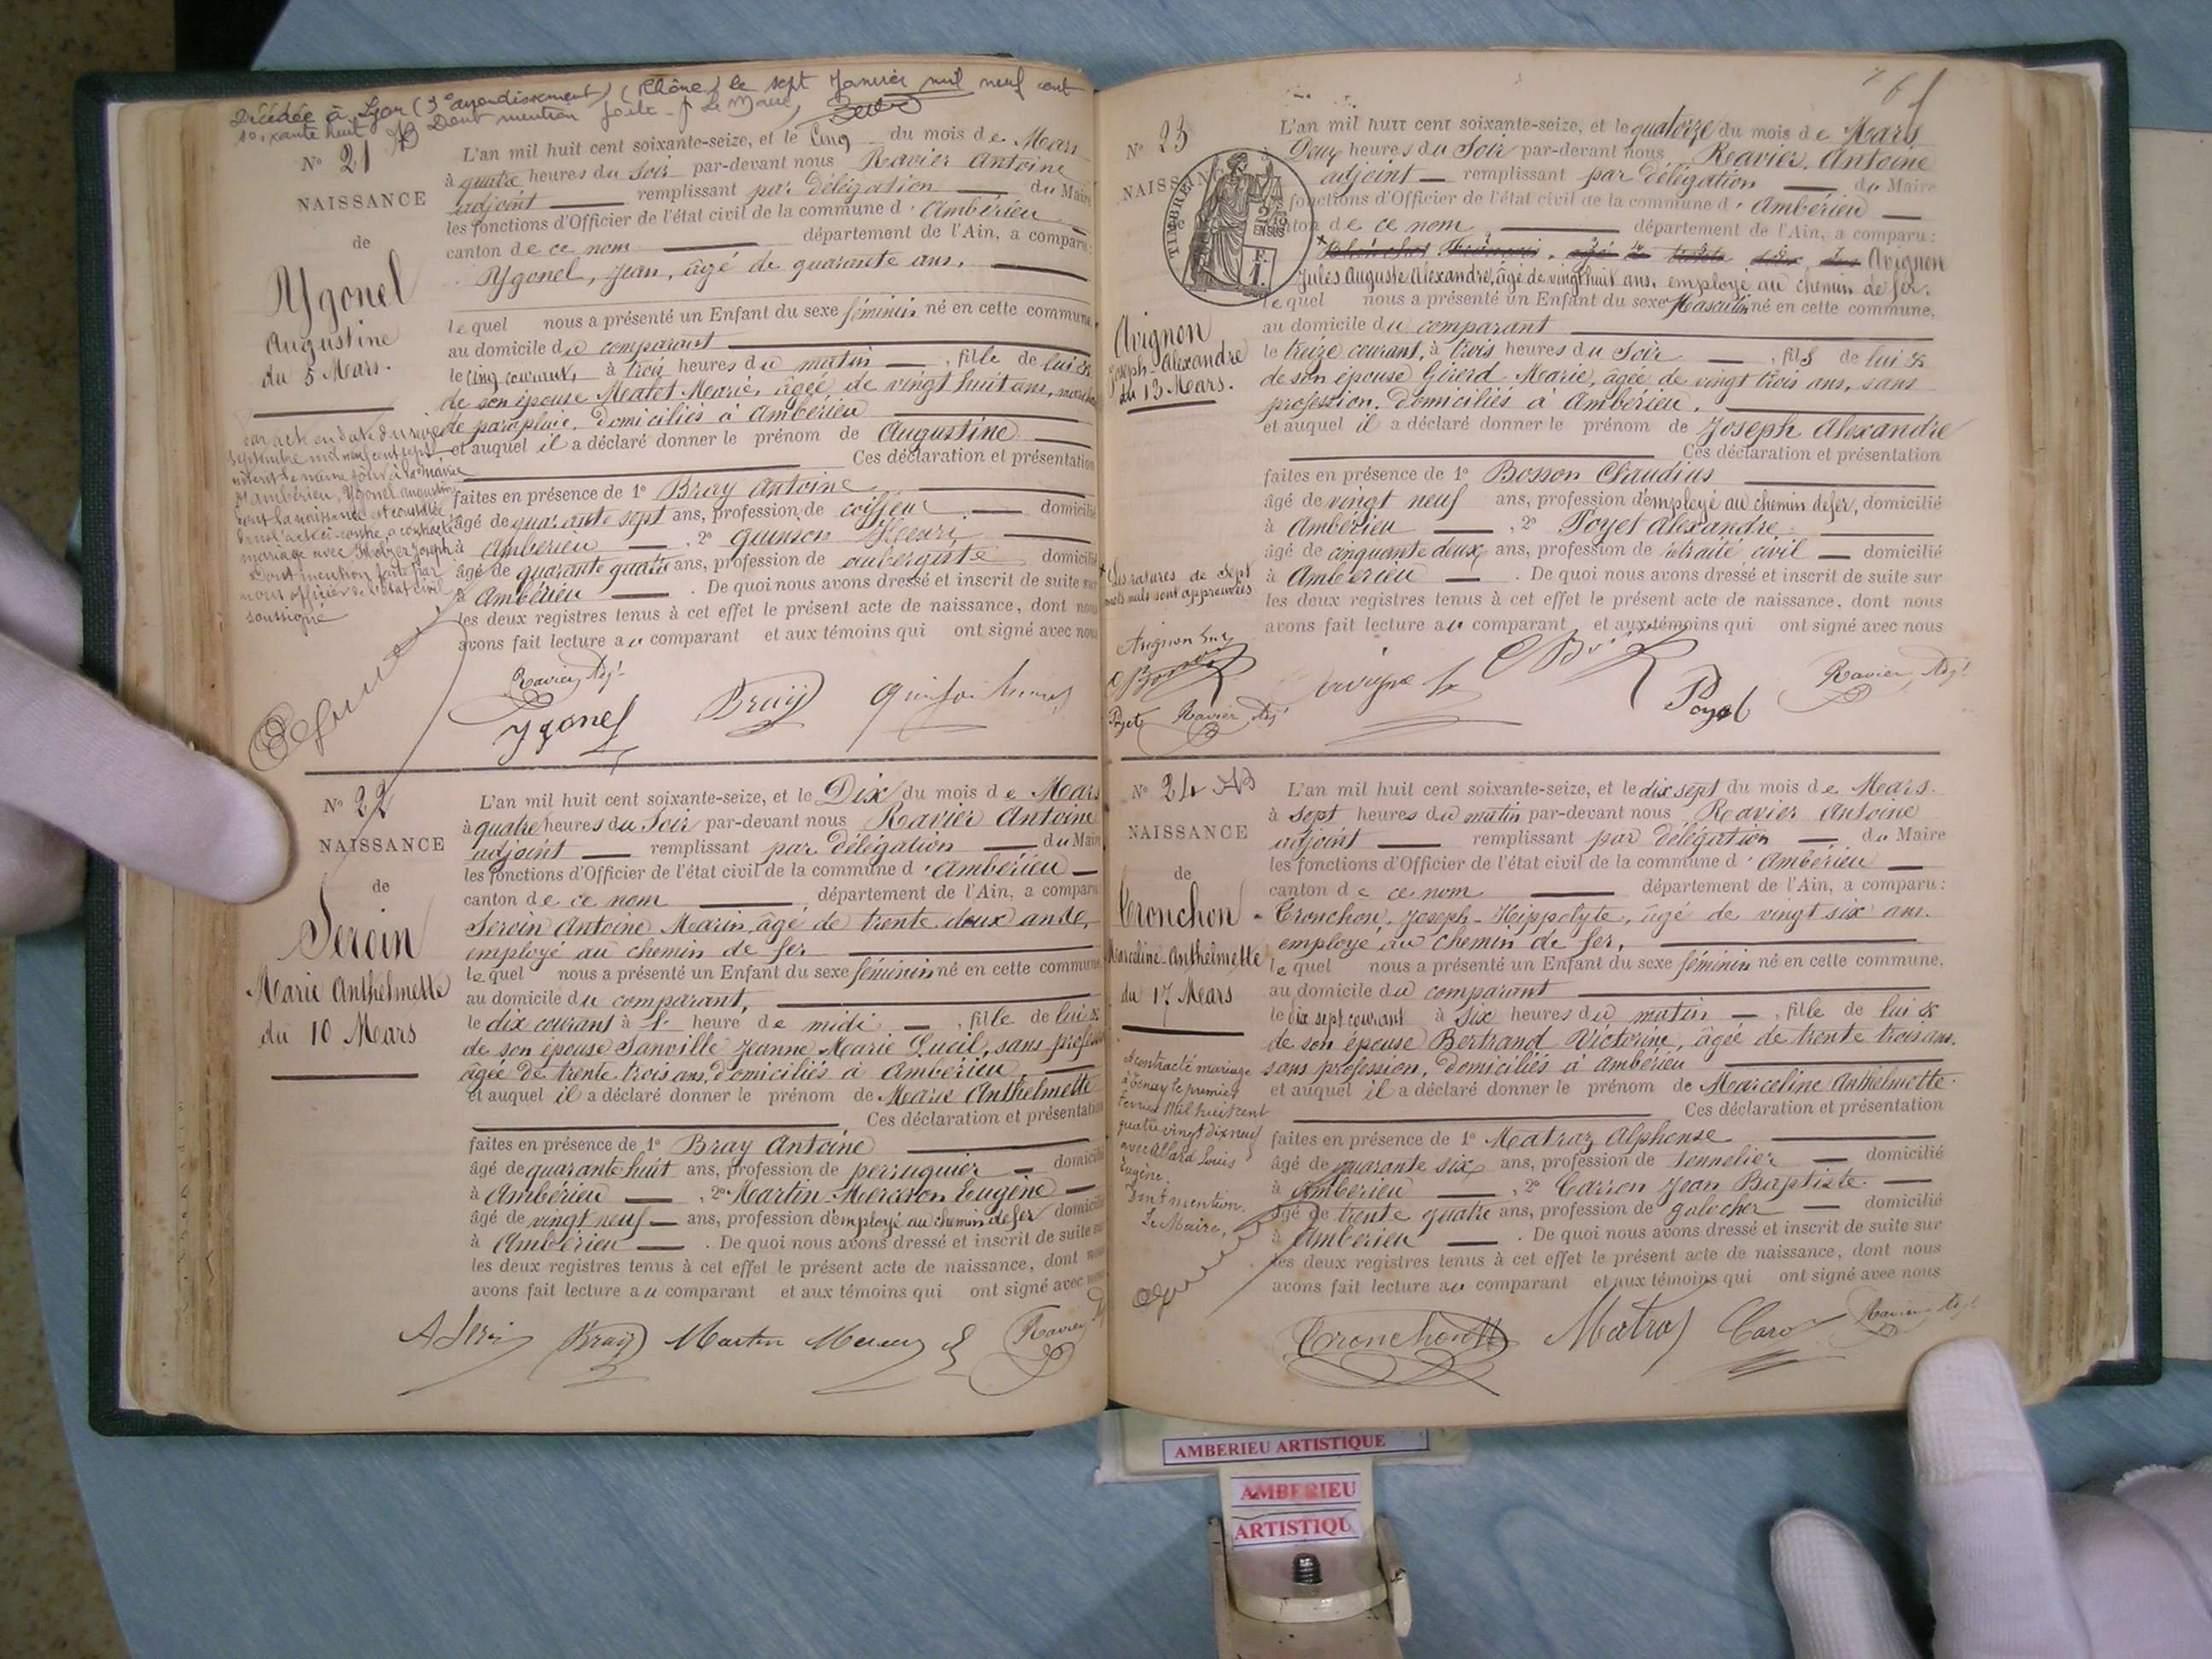 Décédée à Lyon (3e arrondissement) (Rhône) le sept Janvier mil neuf cent
soixante huit Dont mention faite Le Maire,
N° 21
NAISSANCE
de
Ygonel
Augustine
du 5 Mars.
L'an mil huit cent soixante-seize, et le Cinq du mois de Mars
à quatre heures du Soir par-devant nous Ravier Antoine
adjoint remplissant par délégation du Maire
les fonctions d'Officier de l'état civil de la commune d'Ambérieu
canton de ce nom département de l'Ain, a comparu:
Ygonel, Jean, âgé de quarante ans,
lequel nous a présenté un Enfant du sexe féminin né en cette commune,
au domicile du comparant
le cinq courant, à trois heures du matin, fille de lui &
de son épouse Matet Marie, âgée de vingt huit ans,
de parapluie. Domiciliés à Ambérieu
et auquel il a déclaré donner le prénom de Augustine
Ces déclaration et présentation
faites en présence de 1° Bray Antoine
âgé de quarante sept ans, profession de coiffeur domicilié
à Ambérieu, 2° Quinson Henri
âgé de quarante quatre ans, profession de aubergiste domicilié
à Ambérieu. De quoi nous avons dressé et inscrit de suite sur
les deux registres tenus à cet effet le présent acte de naissance, dont nous
avons fait lecture au comparant et aux témoins qui ont signé avec nous
par acte en date du
septembre mil neuf cent sept
inscrit le même jour à la mairie
d'Ambérieu, Ygonel Augustine
dont la naissance est constatée
dans l'acte ci-contre, a contracté
mariage avec Joseph
Dont mention faite par
nous officier de l'état civil
soussigné
Ravier Adjt
Ygonel Bray Quinson henri
N° 22
NAISSANCE
de
Seroin
Marie Anthelmette
du 10 Mars
L'an mil huit cent soixante-seize, et le Dix du mois de Mars
à quatre heures du Soir par-devant nous Ravier Antoine
adjoint remplissant par délégation du Maire
les fonctions d'Officier de l'état civil de la commune d'Ambérieu
canton de ce nom département de l'Ain, a comparu
Seroin Antoine Marin, âgé de trente deux ans,
employé au chemin de fer
lequel nous a présenté un Enfant du sexe féminin né en cette commune,
au domicile du comparant,
le dix courant à heure de midi, fille de lui &
de son épouse Sanville Jeanne Marie Lucil, sans profession
âgée de trente trois ans, domiciliés à Ambérieu,
et auquel il a déclaré donner le prénom de Marie Anthelmette
Ces déclaration et présentation
faites en présence de 1° Bray Antoine
âgé de quarante huit ans, profession de perruquier domicilié
à Ambérieu, 2° Martin-Merceron Eugène
âgé de vingt neuf ans, profession d'employé au chemin de fer domicilié
à Ambérieu. De quoi nous avons dressé et inscrit de suite sur
les deux registres tenus à cet effet le présent acte de naissance, dont nous
avons fait lecture au comparant et aux témoins qui ont signé avec nous
A Seroin Bray Martin Ravier
N° 23
NAISSANCE
TIMBRE
2/10 EN SUS
F. 1.
Avignon
Joseph-Alexandre
du 13 Mars.
L'an mil huit cent soixante-seize, et le quatorze du mois de Mars
à Deux heures du Soir par-devant nous Ravier Antoine
adjoint remplissant par délégation du Maire
fonctions d'Officier de l'état civil de la commune d'Ambérieu
canton de ce nom, département de l'Ain, a comparu:
Avignon
Jules Auguste Alexandre, âgé de vingt huit ans, employé au chemin de fer,
lequel nous a présenté un Enfant du sexe Masculin né en cette commune,
au domicile du comparant
le treize courant, à trois heures du Soir, fils de lui &
de son épouse Girerd Marie, âgée de vingt trois ans, sans
profession. Domiciliés à Ambérieu.
et auquel il a déclaré donner le prénom de Joseph Alexandre
Ces déclaration et présentation
faites en présence de 1° Bosson Claudius
âgé de vingt neuf ans, profession d'employé au chemin de fer, domicilié
à Ambérieu, 2° Poyet Alexandre
âgé de cinquante deux ans, profession de retraité civil domicilié
à Ambérieu. De quoi nous avons dressé et inscrit de suite sur
les deux registres tenus à cet effet le présent acte de naissance, dont nous
avons fait lecture au comparant et aux témoins qui ont signé avec nous
Les ratures de Sept
mots nuls sont approuvées
Avignon
Poyet Ravier Adjt
Poyet Ravier Adjt
N° 24
NAISSANCE
de
Cronchon
Marceline-Anthelmette
du 17 Mars
L'an mil huit cent soixante-seize, et le dix sept du mois de Mars.
à Sept heures du matin par-devant nous Ravier Antoine
adjoint remplissant par délégation du Maire
les fonctions d'Officier de l'état civil de la commune d'Ambérieu
canton de ce nom département de l'Ain, a comparu:
Cronchon, Joseph-Hippolyte, âgé de vingt six ans.
employé au chemin de fer,
lequel nous a présenté un Enfant du sexe féminin né en cette commune,
au domicile du comparant
le dix sept courant à Six heures du matin, fille de lui &
de son épouse Bertrand Victorine, âgée de trente trois ans.
sans profession, Domiciliés à Ambérieu
et auquel il a déclaré donner le prénom de Marceline Anthelmette.
Ces déclaration et présentation
faites en présence de 1° Matraz Alphonse
âgé de quarante six ans, profession de tonnelier domicilié
à Ambérieu, 2° Carron Jean Baptiste.
âgé de trente quatre ans, profession de galocher domicilié
à Ambérieu. De quoi nous avons dressé et inscrit de suite sur
les deux registres tenus à cet effet le présent acte de naissance, dont nous
avons fait lecture au comparant et aux témoins qui ont signé avec nous
A contracté mariage
à Tenay le premier
février Mil huit cent
quatre vingt dix neuf
avec Allard Louis
Eugène.
Dont mention.
Le Maire,
Cronchon Matraz Caron Ravier Adjt
AMBERIEU ARTISTIQUE
AMBERIEU
ARTISTIQU